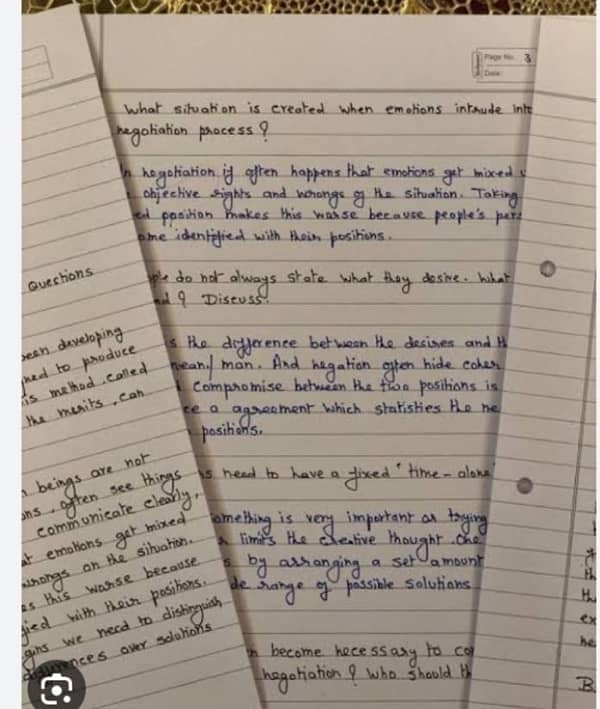 Page No. 3
Date:
What situation is created when emotions intrude into
negotiation process ?
In negotiation it often happens that emotions get mixed
objective rights and wrongs of the situation. Taking
position makes this worse because people's
identified with their positions.
do not always state what they desire. What
? Discuss.
is the difference between the desires and
mean/ man. And negation often hide
compromise between the two positions is
a agreement which statisties the
positions.
need to have a fixed "time-alone
something is very important as trying
limits the creative thought. One
by arranging a set amount
range of possible solutions
become necessary to
negotiation ? Who should
Questions
been developing
to produce
is method called
the merits, can
beings are not
often see things
communicate clearly,
emotions get mixed
wrongs on the sihuation.
this worse because
with their positions.
we need to distinguish
over solutions
ex
he
B